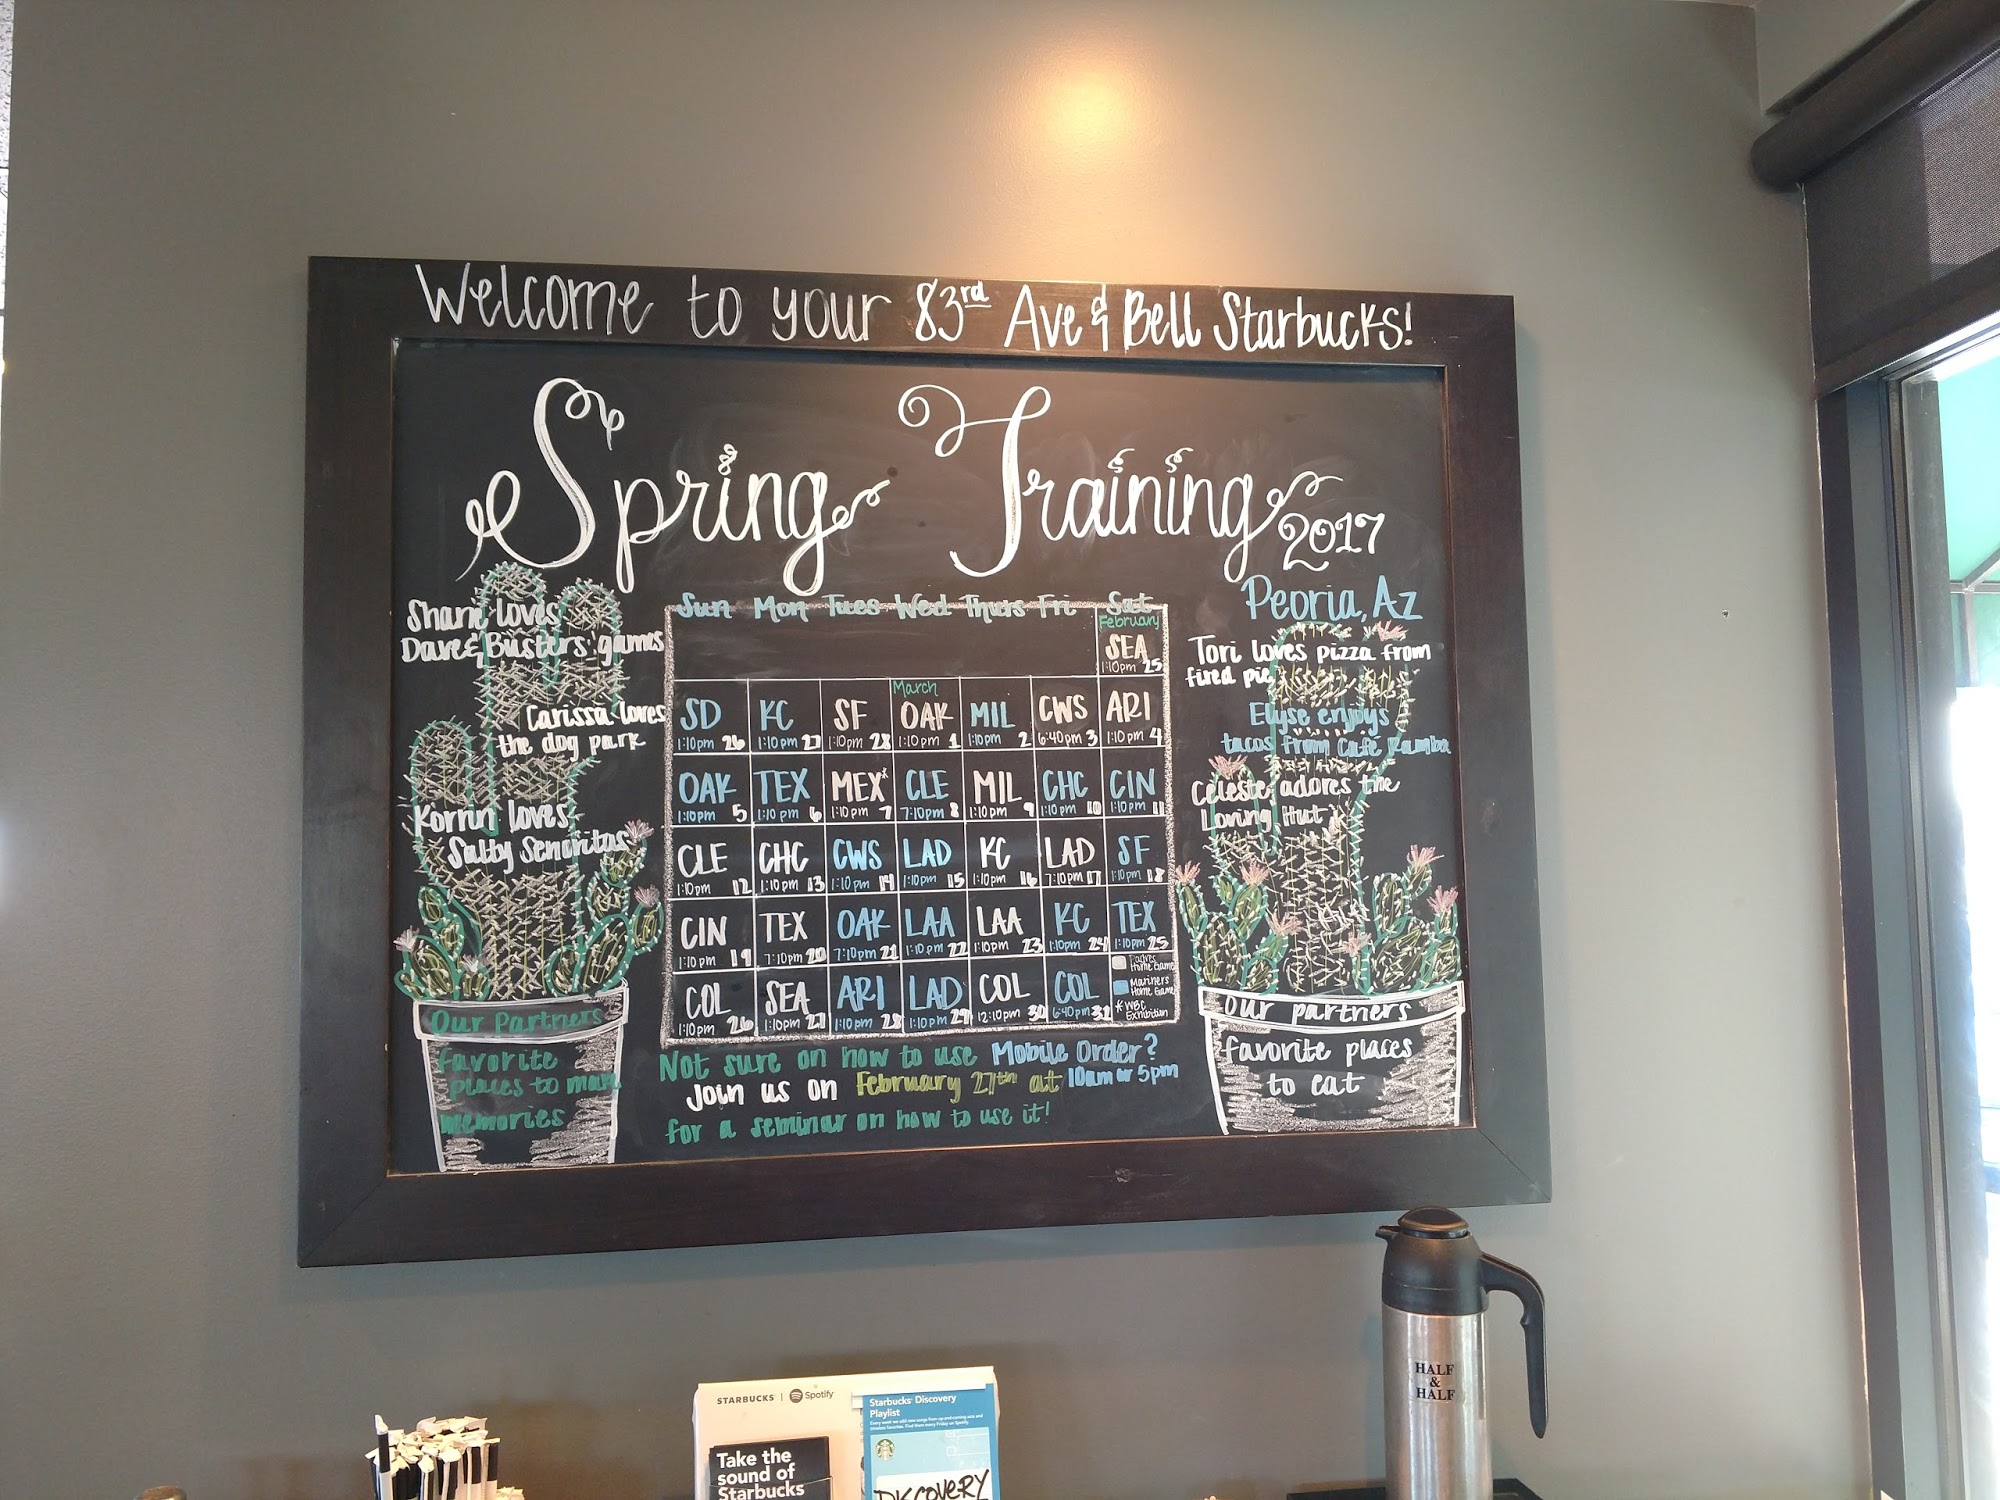 Welcome to your 83rd Ave & Bell Starbucks!
Spring Training 2017
Peoria, Az
Shane loves
Dave & Busters' games
Carissa loves
the dog park
Korrin loves
Salty Senoritas
Our Partners
favorite
places to make
memories
Sun Mon Tues Wed Thurs Fri Sat
February
SEA
1:10pm 25
March
SD KC SF OAK MIL CWS ARI
1:10pm 26 1:10pm 27 1:10pm 28 1:10pm 1 1:10pm 2 6:40pm 3 1:10pm 4
OAK TEX MEX* CLE MIL CHC CIN
1:10pm 5 1:10pm 6 1:10pm 7 7:10pm 8 1:10pm 9 1:10pm 10 1:10pm 11
CLE CHC CWS LAD KC LAD SF
1:10pm 12 1:10pm 13 1:10pm 14 1:10pm 15 1:10pm 16 7:10pm 17 1:10pm 18
CIN TEX OAK LAA LAA KC TEX
1:10pm 19 7:10pm 20 7:10pm 21 1:10pm 22 1:10pm 23 1:10pm 24 1:10pm 25
COL SEA ARI LAD COL COL
1:10pm 26 1:10pm 27 1:10pm 28 1:10pm 29 12:10pm 30 6:40pm
Padres
Home Game
Mariners
Home Game
* WBC
Exhibition
Not sure on how to use Mobile Order?
Join us on February 27th at 10am or 5pm
for a seminar on how to use it!
Tori loves pizza from
fired pie
Elyse enjoys
tacos from Café Rumba
Celeste adores the
Loving Hut
Our partners
favorite places
to eat
STARBUCKS | Spotify
Take the
sound of
Starbucks
Starbucks Discovery
Playlist
DISCOVERY
HALF
&
HALF